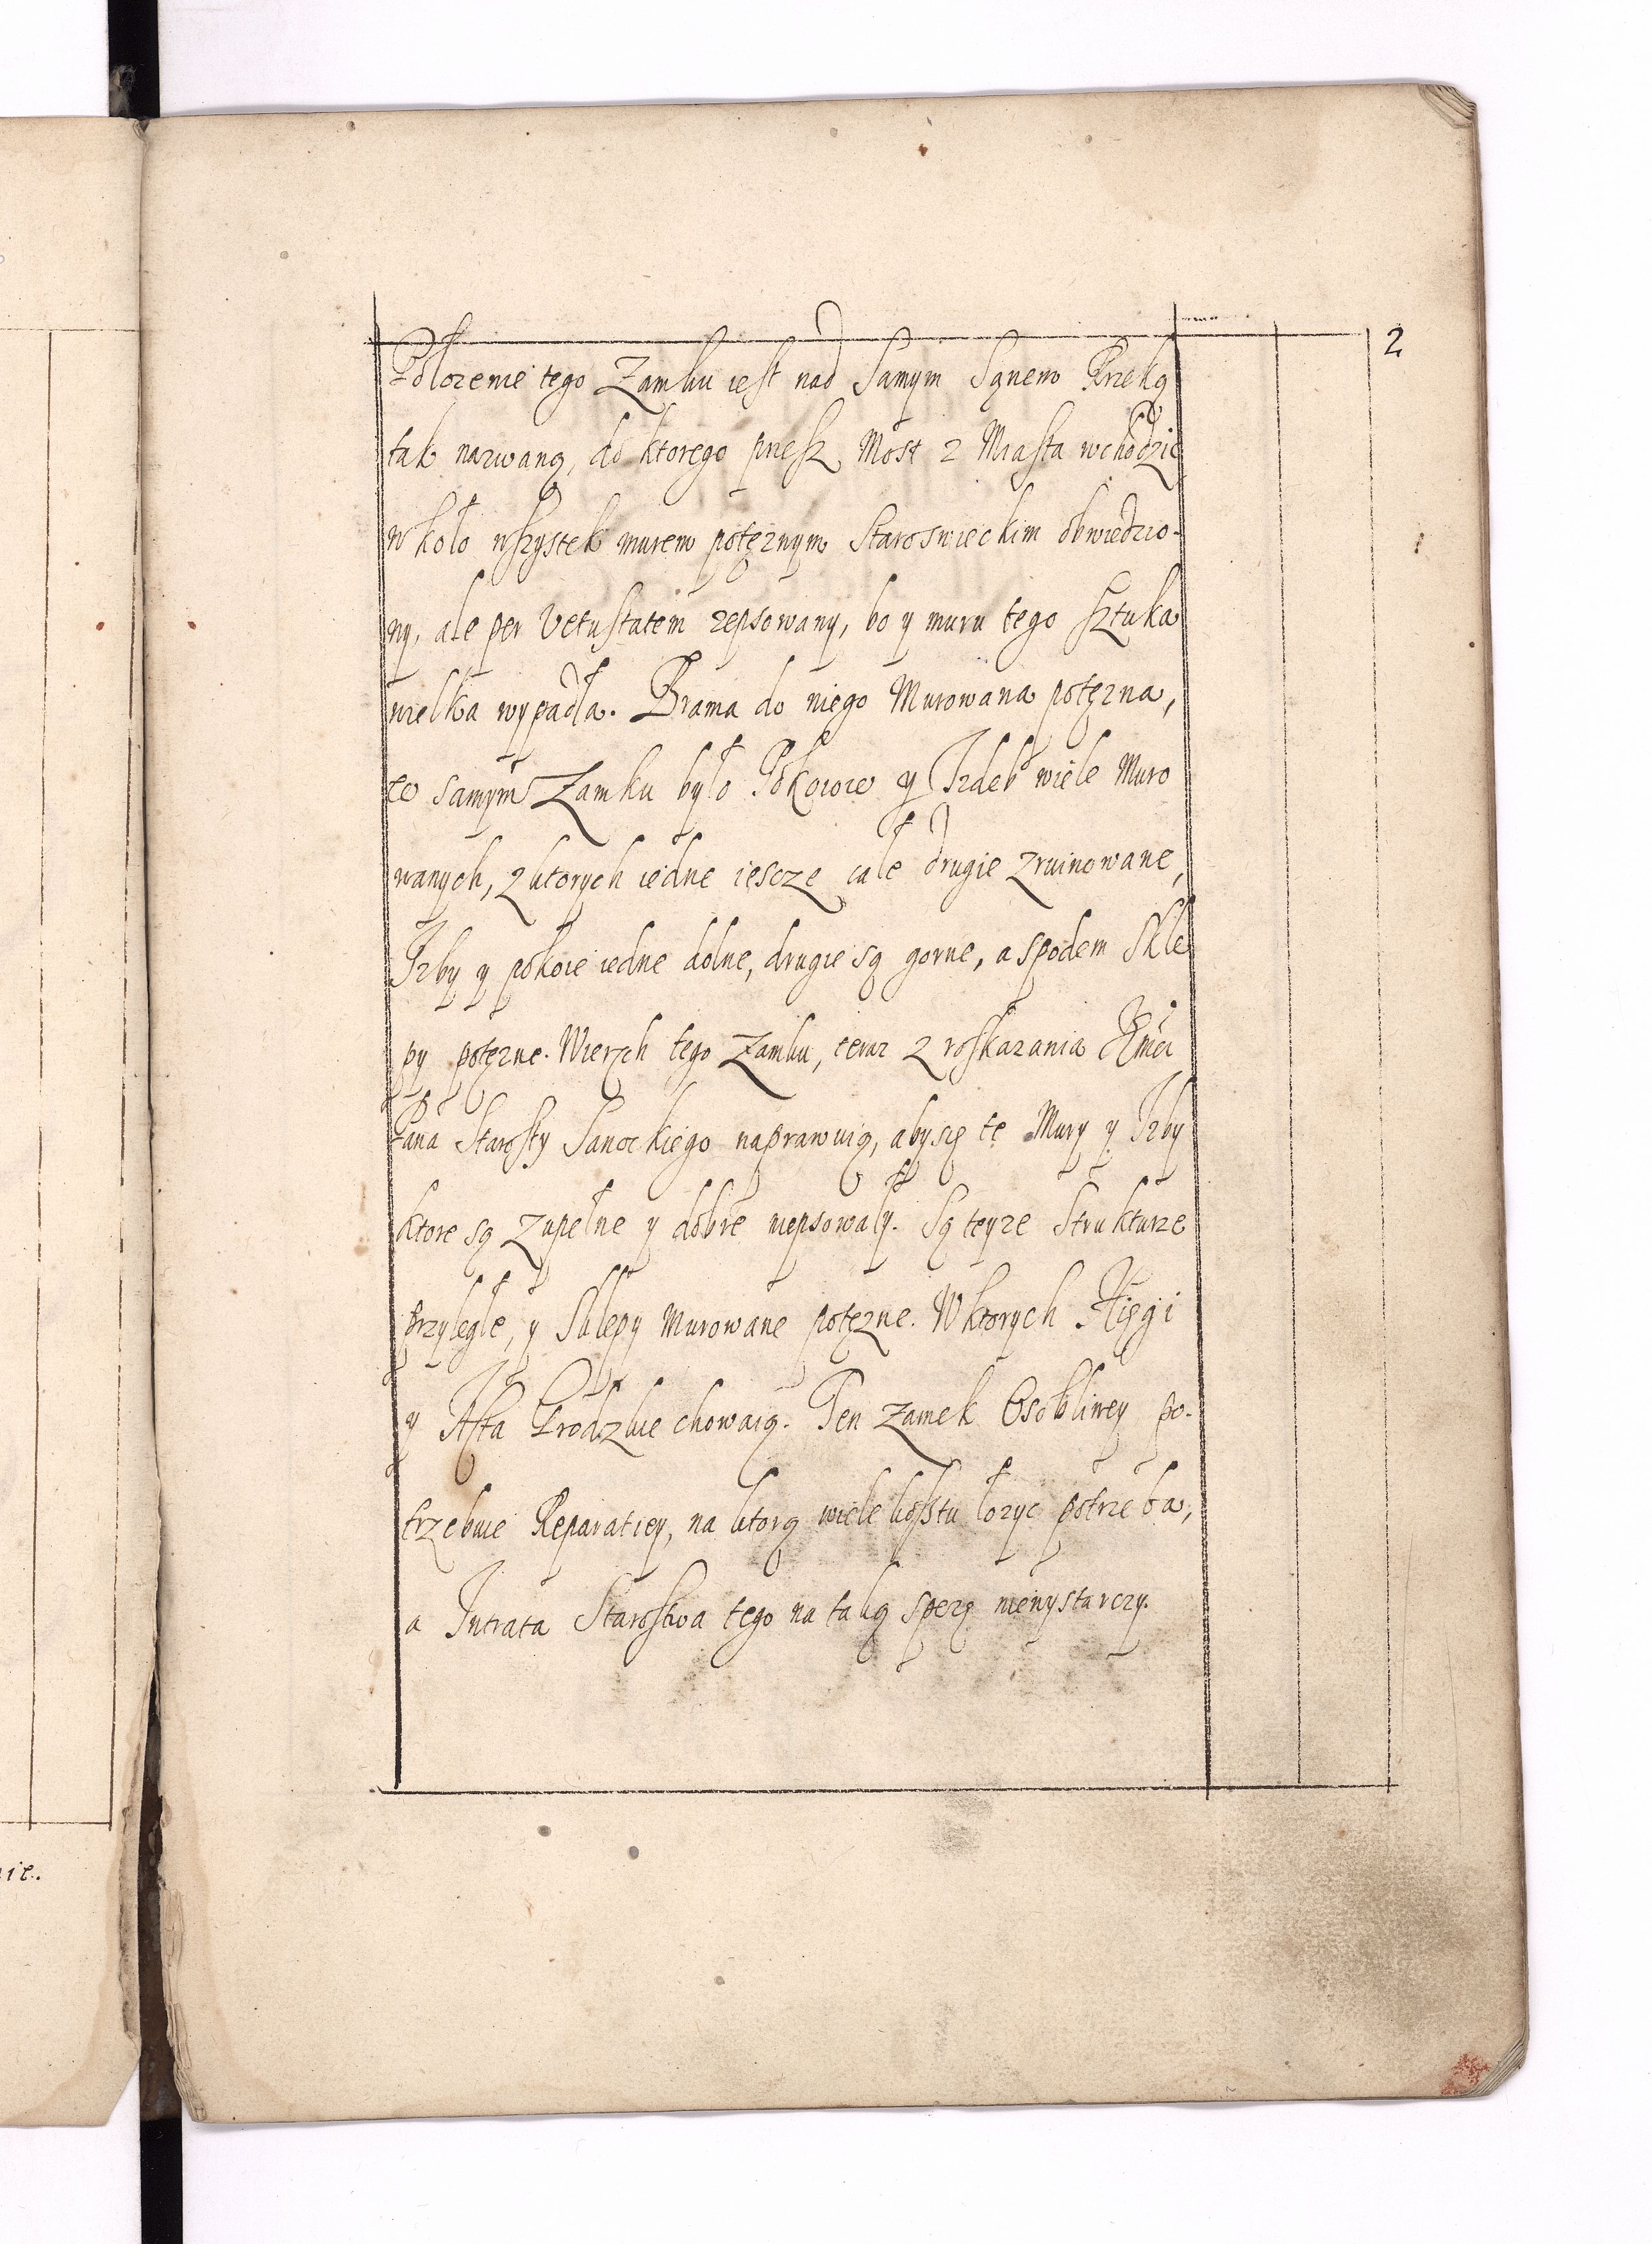 2
Położenie tego Zamku iest nad Samym Sanem Rzeką
tak nazwaną, do ktorego przesz Most z Miasta wchodzić
w koło wszystek murem potężnym Staroswieckim obwiedzio-
ny, ale per Vetustatem zepsowany, bo y muru tego sztuka
wielka wypadła. Brama do niego Murowana potężna,
w samym Zamku było Pokoiow y Izdeb wiele Muro
wanych, z ktorych iedne iescze całe drugie zruinowane,
Izby y pokoie iedne dolne, drugie są gorne, a spodem Skle
py potężne. Wierzch tego Zamku, teraz z roskazania Jmci
Pana Starosty Sanockiego naprawuią, aby się te Mury y Izby
ktore są zupełne y dobre niepsowały. Są teyże Strukturze
przyległe, y Sklepy Murowane potężne. W ktorych Xięgi
y Akta Grodzkie chowaią. Ten Zamek Osobliwey po-
trzebuie Reparatiey, na ktorą wiele kosztu łozyc potrzeba,
a Intrata Starostwa tego na taką spezę niewystarczy.
nie.